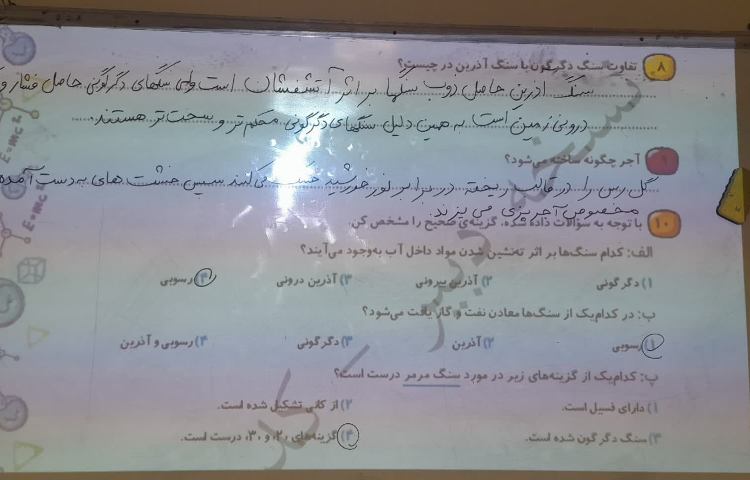 ۸ تفاوت سنگ دگرگون با سنگ آذرین در چیست؟
سنگ اذرین حاصل ذوب سنگها بر اثر آتشفشان است ولی سنگهای دگرگونی حاصل فشار و
درونی زمین است به همین دلیل سنگهای دگرگونی محکم تر و سخت تر هستند.
۹ آجر چگونه ساخته می‌شود؟
گل رس را در قالب ریخته در برابر نور خورشید خشک می کنند سپس خشت های به دست آمده
مخصوص آجرپزی می پزند.
۱۰ با توجه به سؤالات داده شده، گزینه‌ی صحیح را مشخص کن.
الف: کدام سنگ‌ها بر اثر ته‌نشین شدن مواد داخل آب به‌وجود می‌آیند؟
۱) دگرگونی ۲) آذرین بیرونی ۳) آذرین درونی ۴) رسوبی
ب: در کدام‌یک از سنگ‌ها معادن نفت و گاز یافت می‌شود؟
۱) رسوبی ۲) آذرین ۳) دگرگونی ۴) رسوبی و آذرین
پ: کدام‌یک از گزینه‌های زیر در مورد سنگ مرمر درست است؟
۱) دارای فسیل است. ۲) از کانی تشکیل شده است.
۳) سنگ دگرگون شده است. ۴) گزینه‌های «۲» و «۳» درست است.